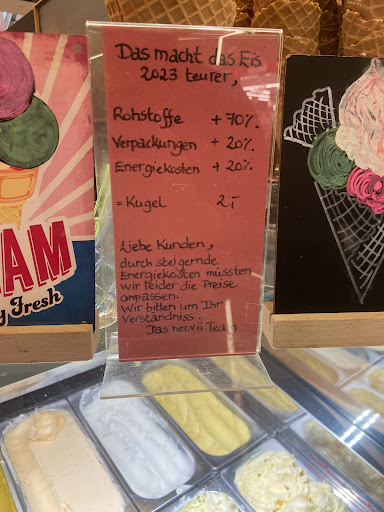 Das macht das Eis
2023 teurer,
Rohstoffe + 70%.
Verpackungen + 20%.
Energiekosten + 20%.
= Kugel 2,-
Liebe Kunden,
durch steigernde
Energiekosten müssten
wir leider die Preise
anpassen.
Wir bitten um Ihr
Verständniss.
Das Team
AM
Fresh